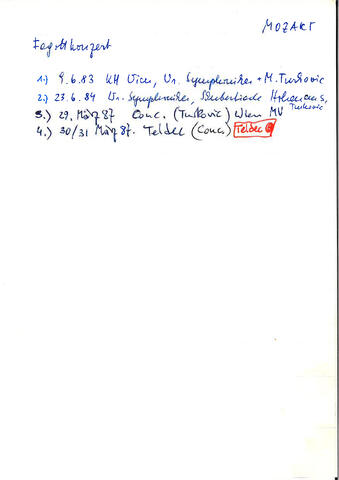 MOZART
Fagottkonzert
1.) 9.6.83 KH Wien, Wr. Symphoniker + M. Turkovic
2.) 23.6.84 Wr. Symphoniker, Schubertiade Hohenems, Turkovic
3.) 29. März 87 Conc. (Turkovic) Wien MV
4.) 30/31 März 87. Teldec (Conc.) Teldec